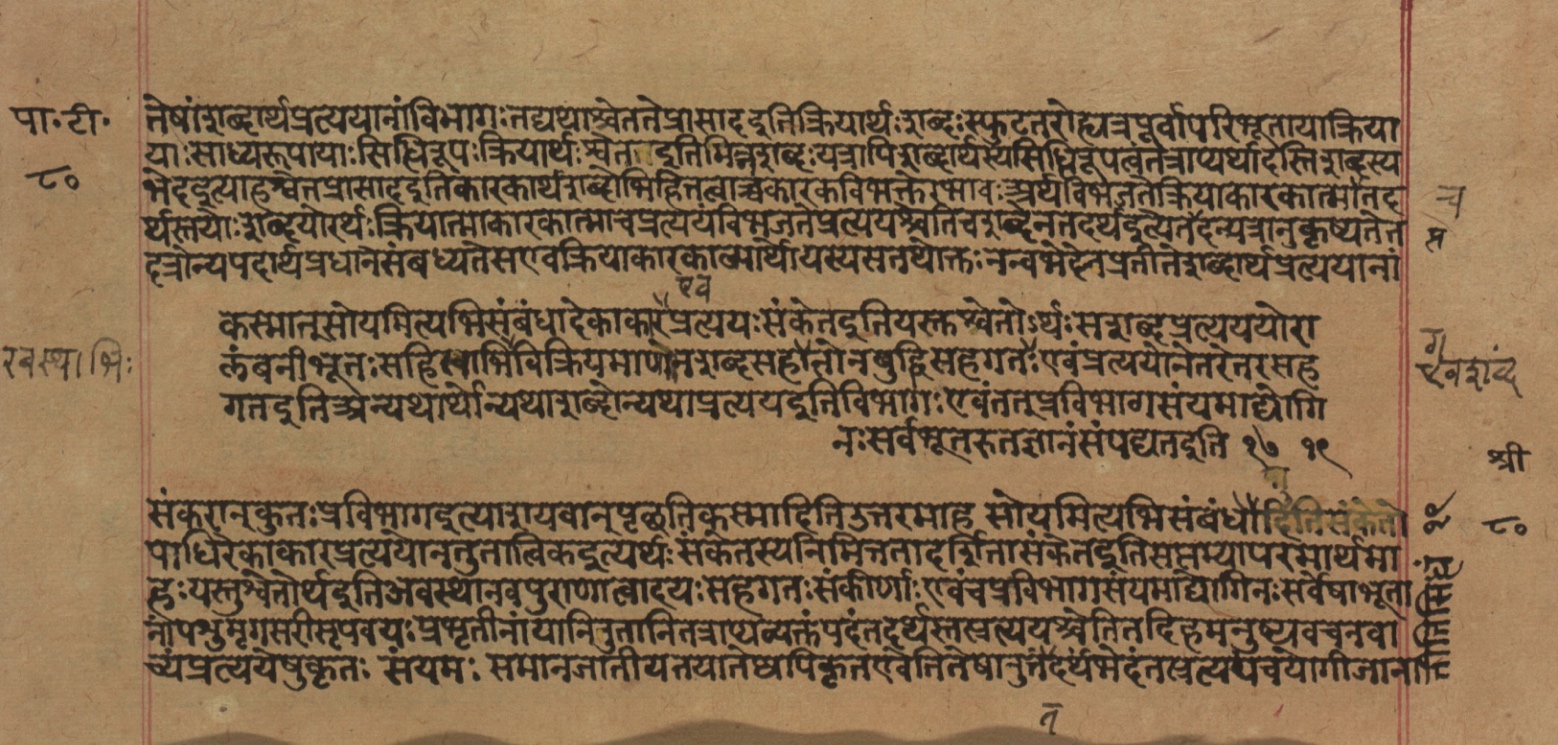 पा॰टी॰
८०
तेषांशब्दार्थप्रत्ययानांविभागःतद्यथाश्वेततेप्रासादइतिक्रियार्थःशब्दःस्फुटतरोह्यत्रपूर्वापरिभूतायाक्रिया
याःसाध्यरूपायाःसिधिरूपःक्रियार्थःश्वेतइतिभिन्नशब्दःयत्रापिशब्दार्थस्यसिधिरूपत्वंतत्राप्यर्थादस्तिशब्दस्य
भेदइत्याहश्वेतप्रासादइतिकारकार्थशब्दोभिहितत्वाच्चकारकविभक्तेरभावःअर्थविभजतेक्रियाकारकात्मातद
र्थस्तयोःशब्दयोरर्थःक्रियात्माकारकात्माचप्रत्ययविभजतेप्रत्ययश्चेतिचशब्देनतदर्थइत्येतदन्यत्रानुकृष्यतेत
दत्रान्यपदार्थप्रधानसंबध्यतेसएवक्रियाकारकात्मार्थोयस्यसतथोक्तःनन्वभेदेनप्रतीतेशब्दार्थप्रत्ययानां
एव
कस्मात्सोयमित्यभिसंबंधादेकाकारप्रत्ययःसंकेतइतियस्तुश्वेतोऽर्थःसशब्दप्रत्यययोरा
लंबनीभूतःसहिस्वाभिर्विक्रियमाणोनशब्दसहगतोनबुद्धिसहगतःएवंप्रत्ययोनेतरेतरसह
गतइतिअन्यथार्थोन्यथाशब्दोन्यथाप्रत्ययइतिविभागःएवंतत्प्रविभागसंयमाद्योगि
नःसर्वभूतरुतज्ञानंसंपद्यतइति १७ १९
संकरात्कुतःप्रविभागइत्याशयवान्पृछतिकस्मादितिउत्तरमाह सोयमित्यभिसंबंधादितिसंकेतो
पाधिरेकाकारप्रत्ययोनतुतात्विकइत्यर्थःसंकेतस्यनिमित्ततादर्शितासंकेतइतिसप्तम्यापरमार्थमा
हःयस्तुश्वेतोर्थइतिअवस्थानवपुराणत्वादयःसहगतःसंकीर्णःएवंचप्रविभागसंयमाद्योगिनःसर्वेषांभूता
नांपशुमृगसरीसृपवयःप्रभृतीनांयानिरुतानितत्राप्यव्यक्तंपदंतदर्थस्तत्प्रत्ययश्चेतितदिहमनुष्यवचनवा
च्यप्रत्ययेषुकृतः संयमः समानजातीयतयातेष्वपिकृतएवेतितेषांरुतंतदर्थभेदंतत्प्रत्ययंचयोगीजाना
श्री
८०
त